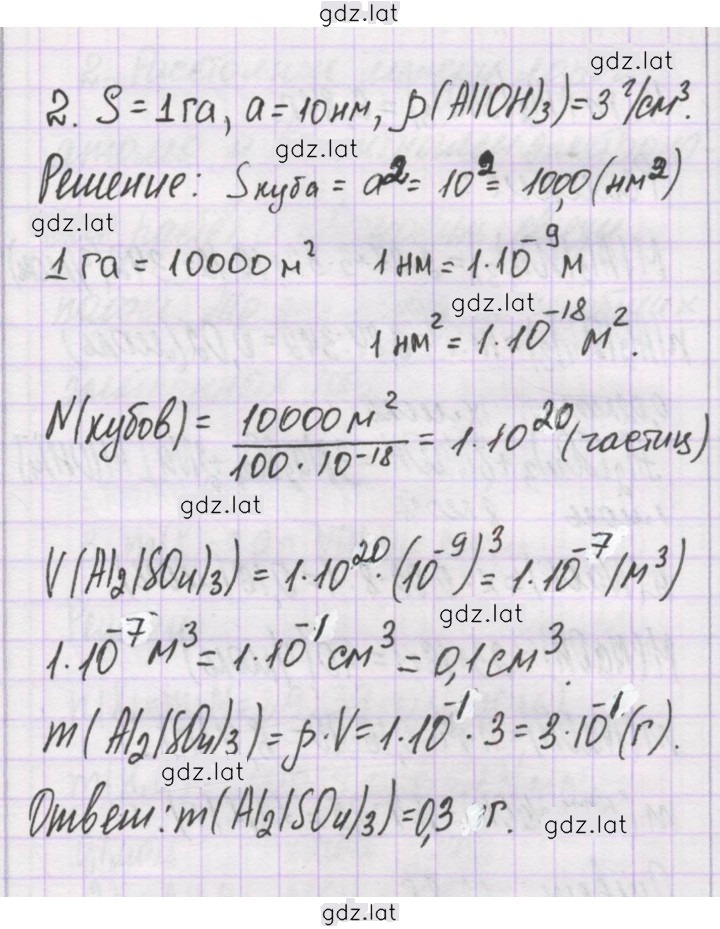 gdz.lat
gdz.lat
2. S = 1 га, a = 10 нм, ρ(Al(OH)3) = 3 г/см³.
gdz.lat
Решение: Sкуба = a² = 10² = 100 (нм²)
gdz.lat
1 га = 10000 м² 1 нм = 1·10⁻⁹ м
gdz.lat
1 нм² = 1·10⁻¹⁸ м².
N(кубов) = 10000 м² / 100·10⁻¹⁸ = 1·10²⁰ (частиц)
gdz.lat
V(Al2(SO4)3) = 1·10²⁰·(10⁻⁹)³ = 1·10⁻⁷ (м³)
gdz.lat
1·10⁻⁷ м³ = 1·10⁻¹ см³ = 0,1 см³.
m(Al2(SO4)3) = ρ·V = 1·10⁻¹·3 = 3·10⁻¹ (г).
gdz.lat
Ответ: m(Al2(SO4)3) = 0,3 г.
gdz.lat
gdz.lat